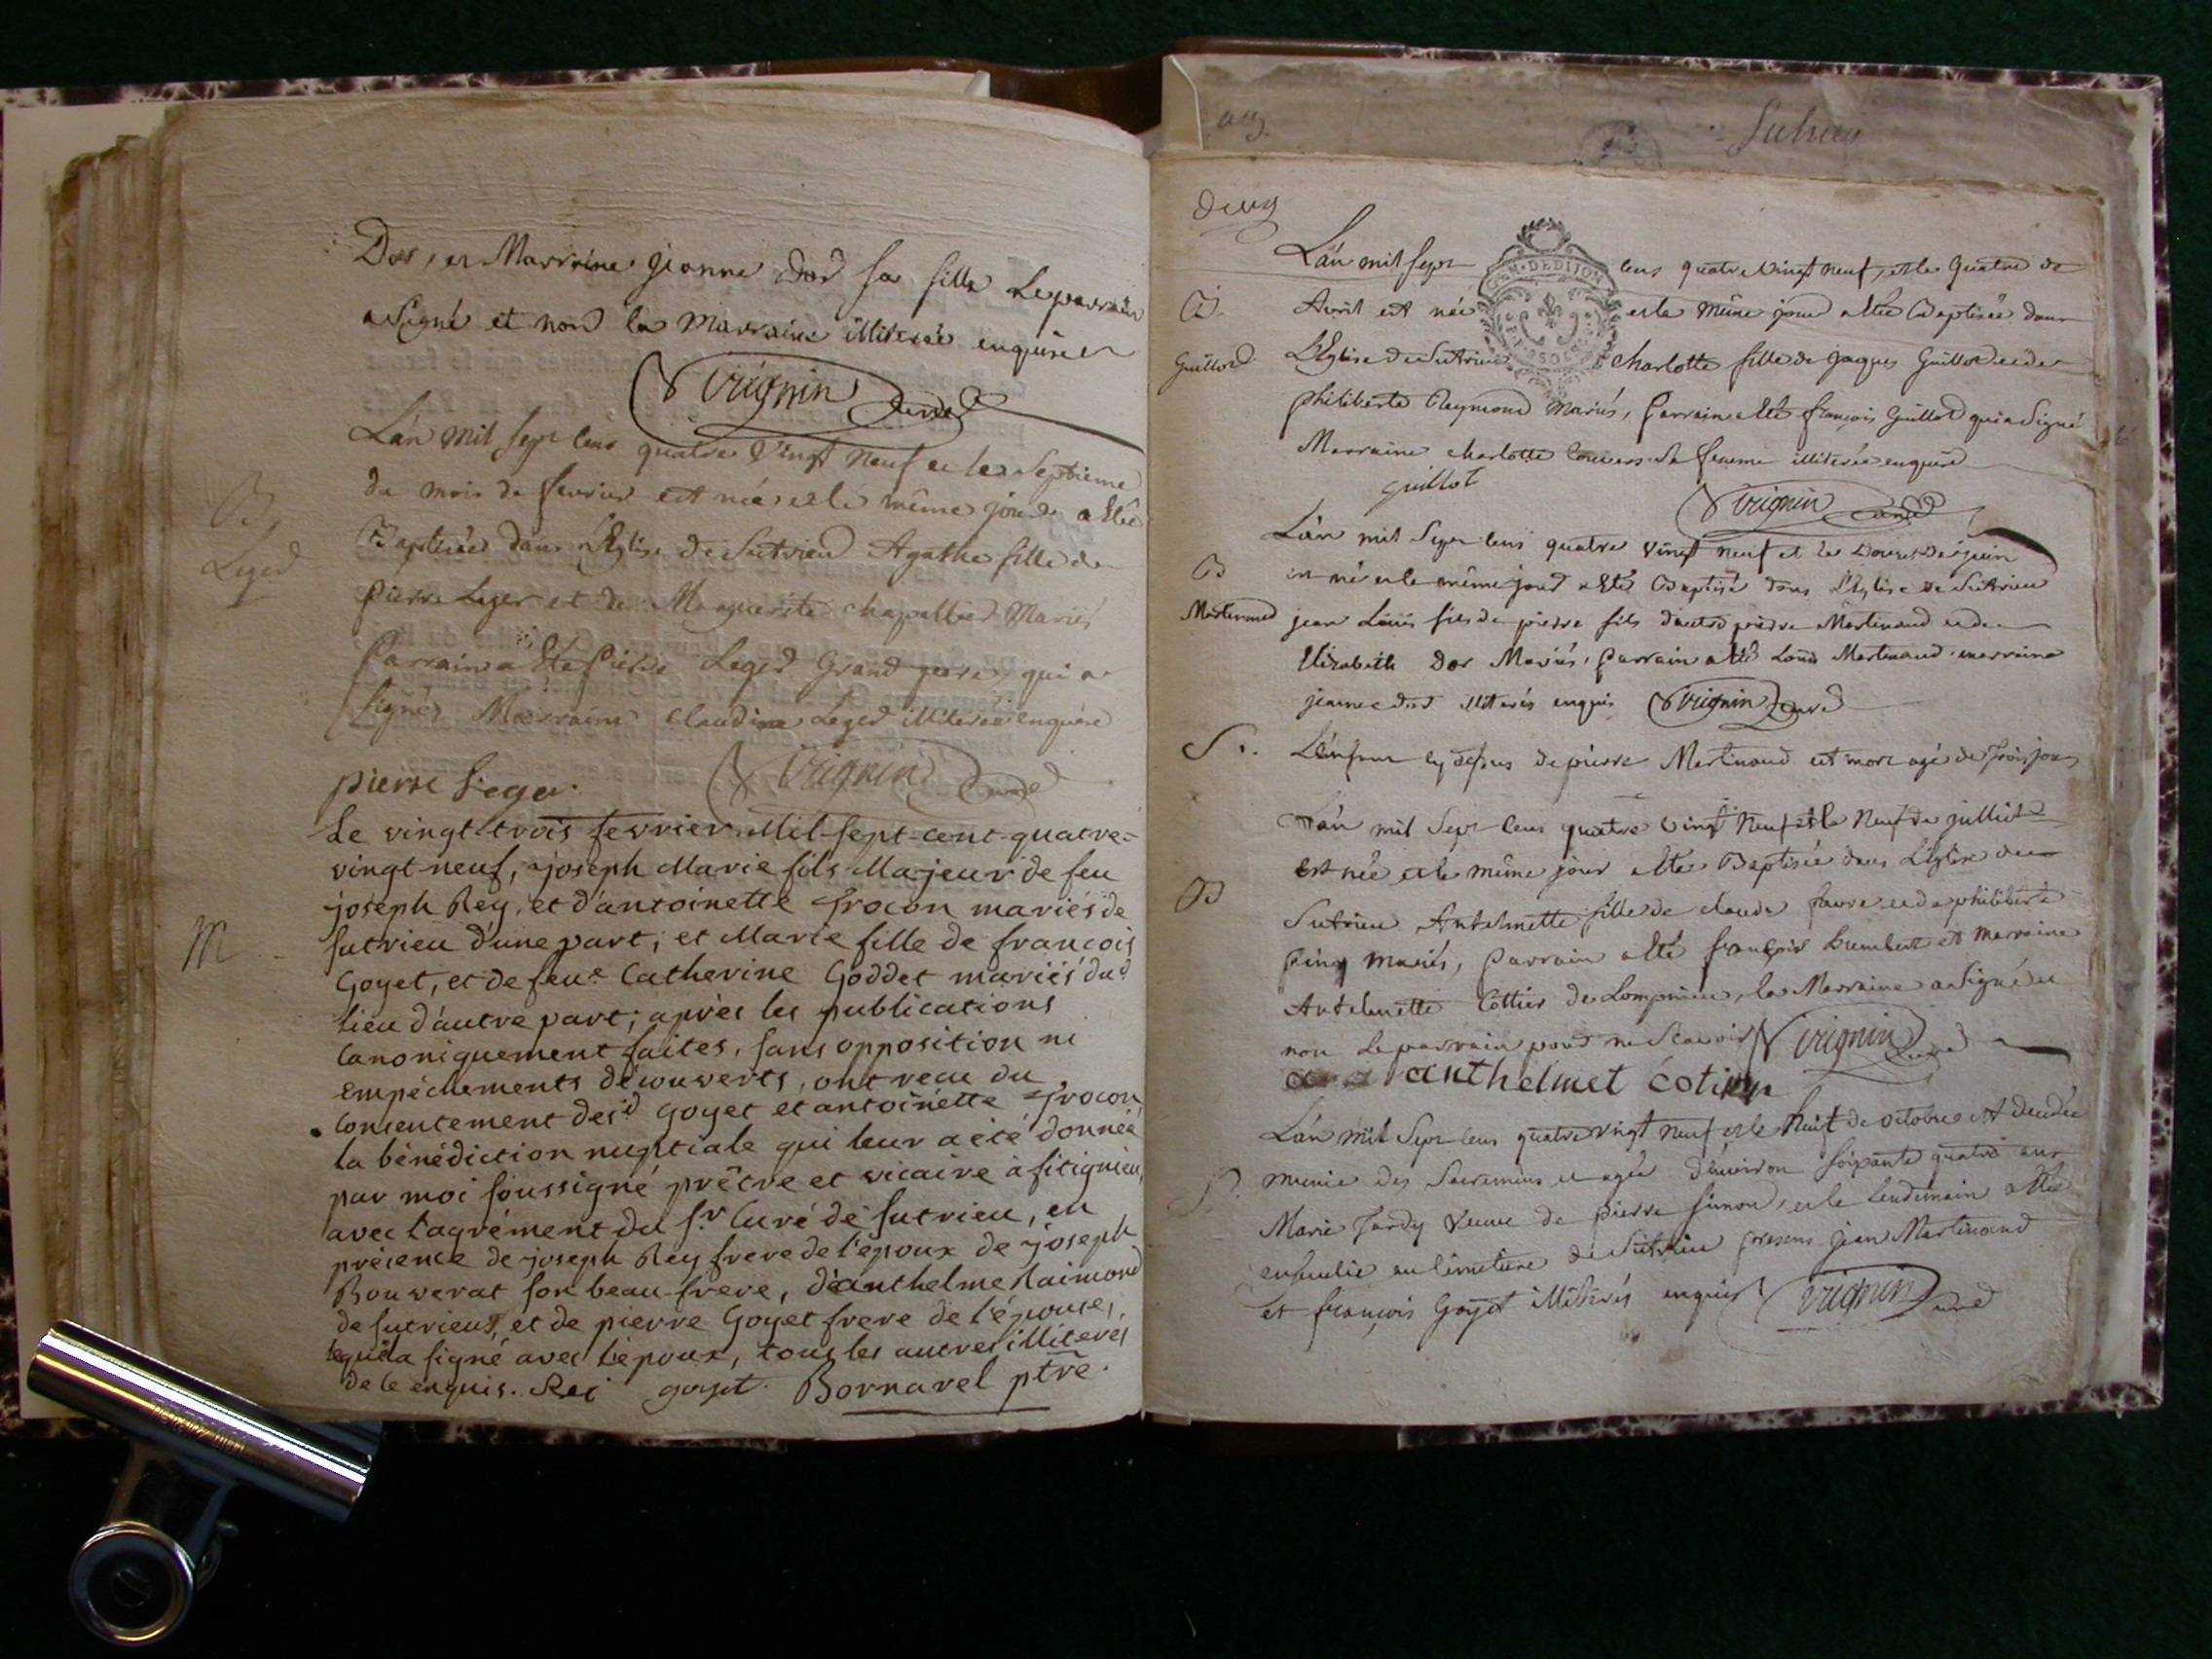 Dor, et Marraine jeanne dor sa fille Le parrain
a Signé et non la Marraine illiterée enquise
Vrignin Curé
B
Leger
L'an mil sept cens quatre Vingt Neuf et le Septieme
du mois de fevrier est née et le même jour a Eté
Baptisée dans l'Eglise de Sutrieu Agathe fille de
Pierre Leger et de Marguerite chapellier Mariés
Parrain a Eté Pierre Leger Grand pere, qui a
signé, Marraine Claudine Leger illiterée enquise
pierre Leger Vrignin Curé
M
Le vingt-trois fevrier Mil-sept-cent-quatre-
vingt-neuf, joseph Marie fils Majeur de feu
joseph Rey, et d'antoinette Trocon mariés de
sutrieu d'une part, et Marie fille de francois
Goyet, et de feue Catherine Goddet mariés dud
lieu d'autre part; après les publications
Canoniquement faites, sans opposition ni
empéchements découverts, ont reçu du
consentement desd Goyet et antoinette Trocon
la bénédiction nuptiale qui leur a été donnée
par moi soussigné prêtre et vicaire à fitignieu,
avec l'agrément du Sr Curé de sutrieu, en
présence de joseph Rey frere de l'époux de joseph
Bouverat son beau-frere, d'anthelme Raimond
de sutrieu, et de pierre Goyet frere de l'épouse,
lequel a signé avec l'époux, tous les autres illiterés
de ce enquis. Rei goyet Bornarel ptre.
Sutrieu
deux
GEN. DE DIJON
L'an mil sept cens quatre Vingt neuf, et le Quatre de
B
Avril est née et le même jour a Eté Baptisée dans
Guillot
L'Eglise de Sutrieu Charlotte fille de jaques Guillot et de
philiberte Reymond Mariés, Parrain a Eté françois Guillot qui a Signé
Marraine charlotte sa femme illiterée enquise
guillot Vrignin Curé
L'an mil Sept cens quatre vingt neuf et le Douze de juin
B
est né et le même jour a Eté Baptisé dans l'Eglise de Sutrieu
Martinand
jean Louis fils de pierre fils d'autre pierre Martinand et de
Elizabeth Dor Mariés, Parrain a Eté Louis Martinand marraine
jeanne dor illiterés enquis Vrignin Curé
S.
L'enfant cy dessus de pierre Martinand est mort agé de trois jours
L'an mil Sept cens quatre vingt Neuf et le Neuf de julliet
est née et le même jour a Eté Baptisée dans L'Eglise de
B
Sutrieu Antelmette fille de claude favre et de philiberte
Pin mariés, Parrain a Eté françois humbert et Marraine
Antelmette Cottier de Lompnieu, la Marraine a Signé et
non le parrain pour ne Scavoir Vrignin Curé
anthelmet cotier
L'an mil Sept cens quatre vingt neuf et le huit de octobre est decedée
S.
munie des Sacremens et agée d'environ soixante quatre ans
Marie Tardy Veuve de pierre simon, et le lendemain a Eté
ensevelie au cimetiere de Sutrieu presens jean Martinand
et françois Goyet illiterés enquis Vrignin Curé